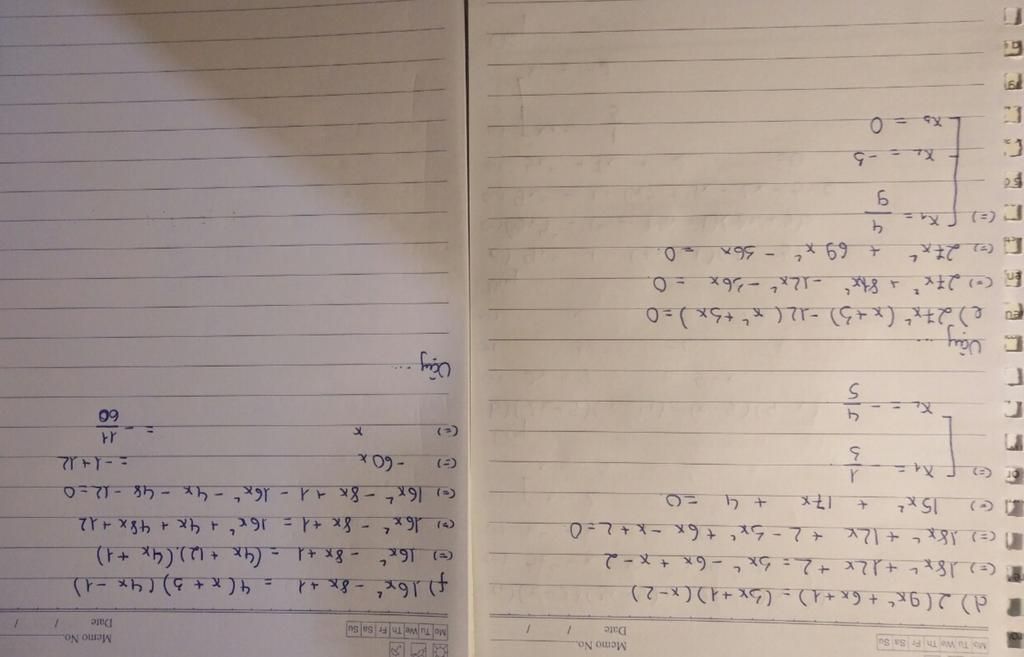 Mo Tu We Th Fr Sa Su
Memo No.
Date / /
d) 2(9x² + 6x + 1) = (3x + 1)(x - 2)
(=) 18x² + 12x + 2 = 3x² - 6x + x - 2
(=) 18x² + 12x + 2 - 3x² + 6x - x + 2 = 0
(=) 15x² + 17x + 4 = 0
(=) [ x₁ = - 1/3
x₂ = - 4/5
Vậy ...
e) 27x² (x + 3) - 12(x² + 3x) = 0
(=) 27x² + 81x² - 12x² - 36x = 0
(=) 27x² + 69x² - 36x = 0
(=) [ x₁ = 4/9
x₂ = -3
x₃ = 0
Mo Tu We Th Fr Sa Su
Memo No.
Date / /
f) 16x² - 8x + 1 = 4(x + 3)(4x - 1)
(=) 16x² - 8x + 1 = (4x + 12).(4x + 1)
(=) 16x² - 8x + 1 = 16x² + 4x + 48x + 12
(=) 16x² - 8x + 1 - 16x² - 4x - 48 - 12 = 0
(=) -60x = -1 + 12
(=) x = - 11/60
Vậy ...